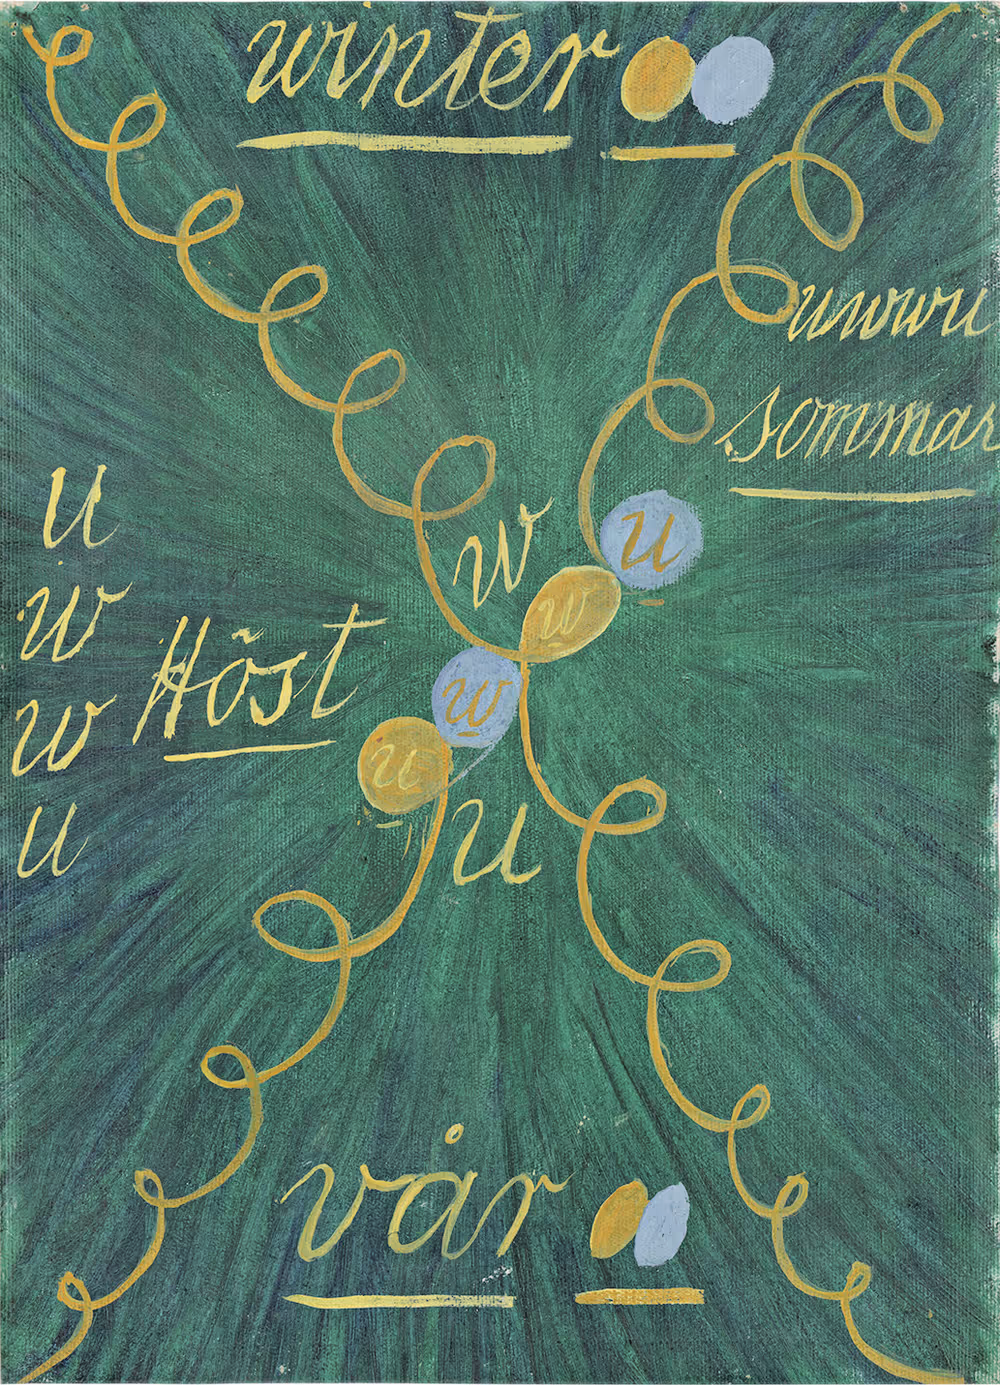 winter
uwwu
sommar
u
w
w
u
Höst
w
u
w
w
u
u
vår